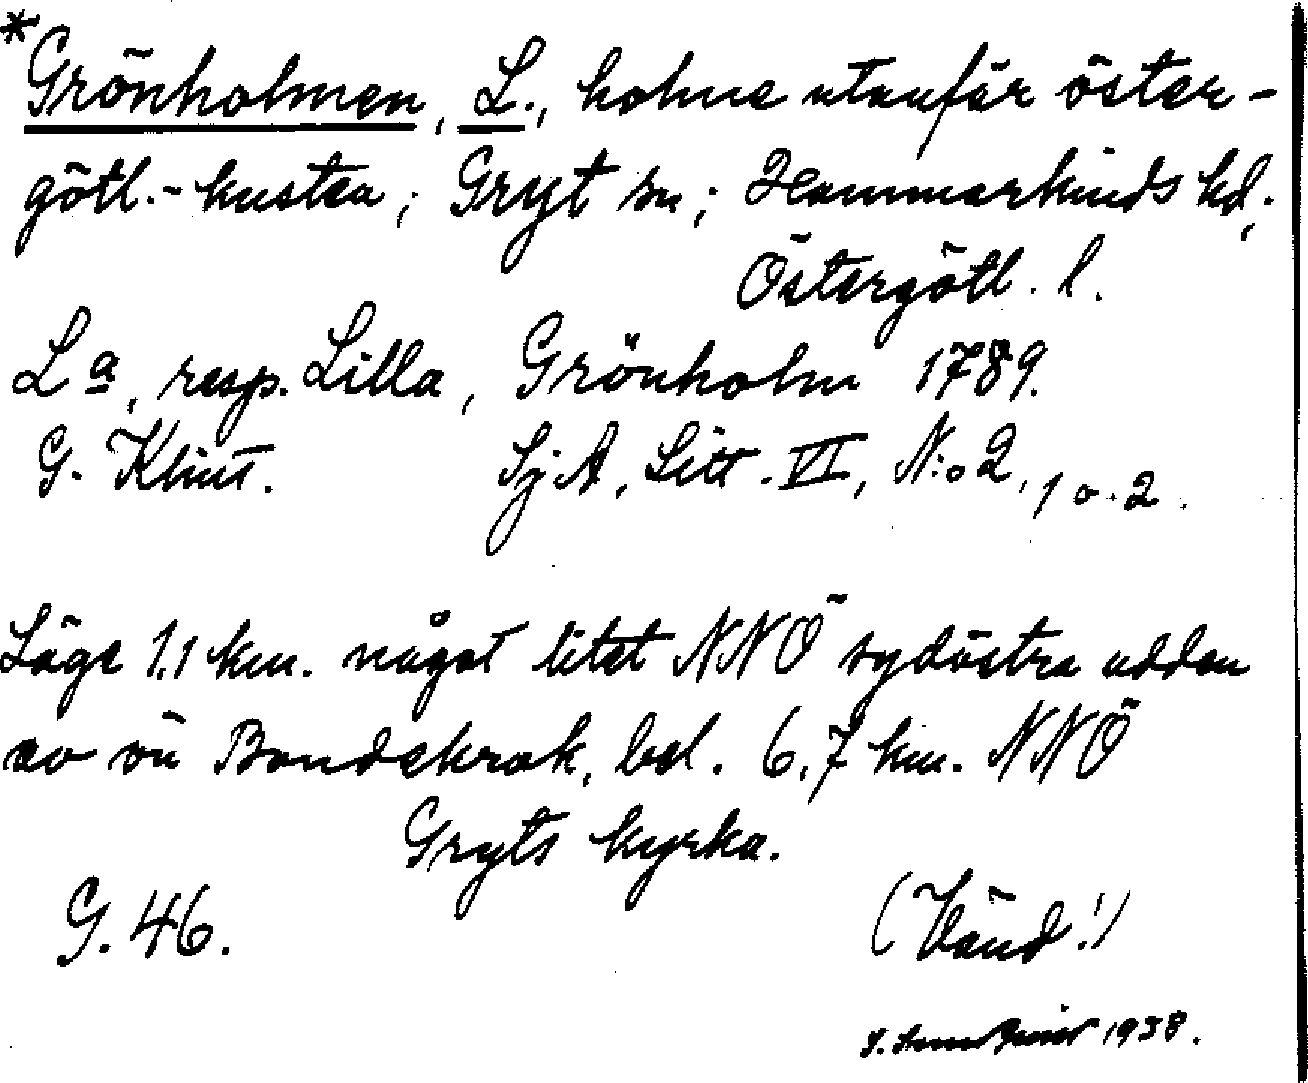 *Grönholmen, L., holme utanför öster-
götl.-kusten; Gryt sn; Hammarkinds hd;
Östergötl. l.
La, resp. Lilla, Grönholm 1789.
G. Klint. SjA, Litt. VI, N:o 2, 1 o. 2.
Läge 1,1 km. något litet NNÖ sydöstra udden
av ön Bondekrok, bel. 6,7 km. NNÖ
Gryts kyrka.
G. 46.
(Vänd!)
1938.